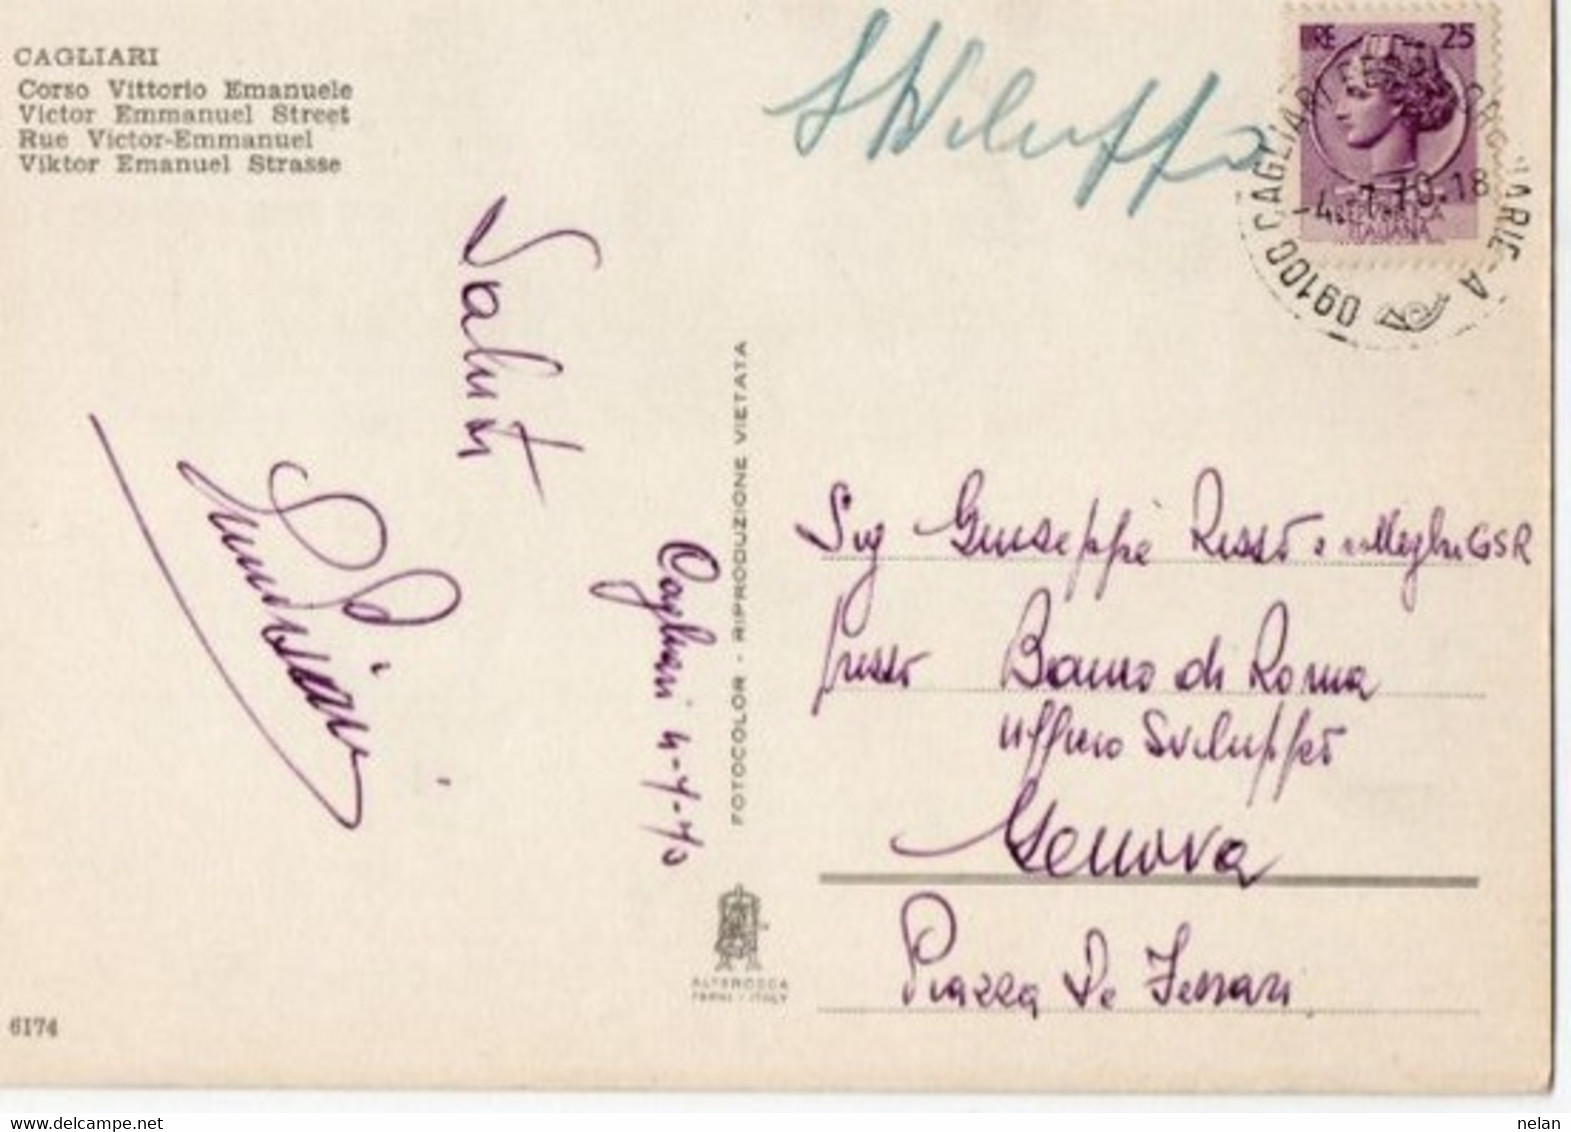 CAGLIARI
Corso Vittorio Emanuele
Victor Emmanuel Street
Rue Victor-Emmanuel
Viktor Emanuel Strasse
LIRE 25
REPUBBLICA
ITALIANA
09100 CAGLIARI FERR. CORR. ORDINARIE - A
-4.-7.70.18
Saluti
Cagliari 4-7-70
FOTOCOLOR - RIPRODUZIONE VIETATA
ALTEROCCA
TERNI - ITALY
Sig Giuseppe Rosso e colleghi GSR
presso Banco di Roma
ufficio Sviluppo
Genova
Piazza De Ferrari
6174
www.delcampe.net
nelan